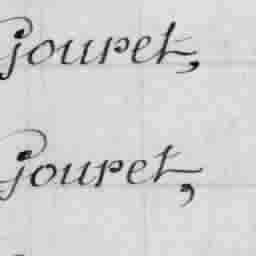 Gouret,
Gouret,